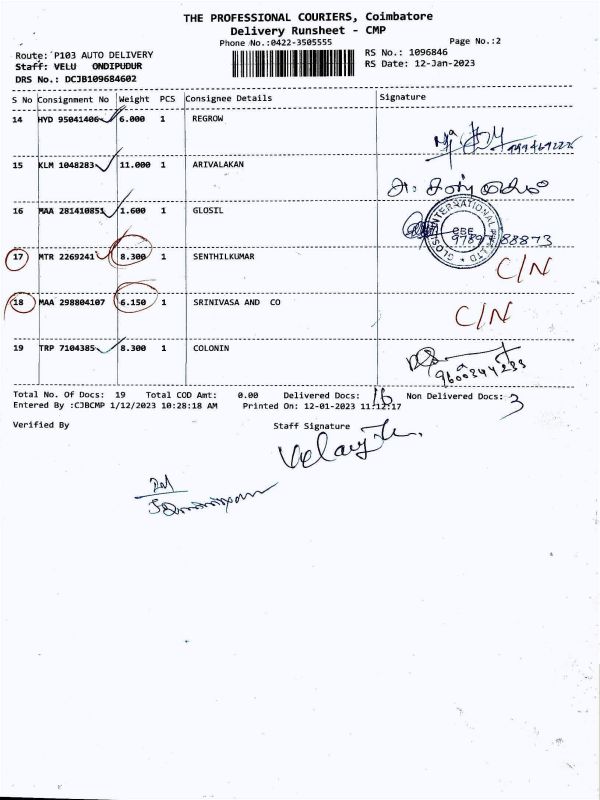 THE PROFESSIONAL COURIERS, Coimbatore
Delivery Runsheet - CMP
Phone No.:0422-3505555
Page No.:2
Route: P103 AUTO DELIVERY
RS No.: 1096846
Staff: VELU ONDIPUDUR
RS Date: 12-Jan-2023
DRS No.: DCJB109684602
S No Consignment No Weight PCS Consignee Details Signature
14 HYD 95041406 6.000 1 REGROW
15 KLM 1048283 11.000 1 ARIVALAKAN
16 MAA 281410851 1.600 1 GLOSIL
17 MTR 2269241 8.300 1 SENTHILKUMAR C/N
18 MAA 298804107 6.150 1 SRINIVASA AND CO C/N
19 TRP 7104385 8.300 1 COLONIN
9600344233
Total No. Of Docs: 19 Total COD Amt: 0.00 Delivered Docs: 16 Non Delivered Docs: 3
Entered By :CJBCMP 1/12/2023 10:28:18 AM Printed On: 12-01-2023 11:12:17
Verified By Staff Signature